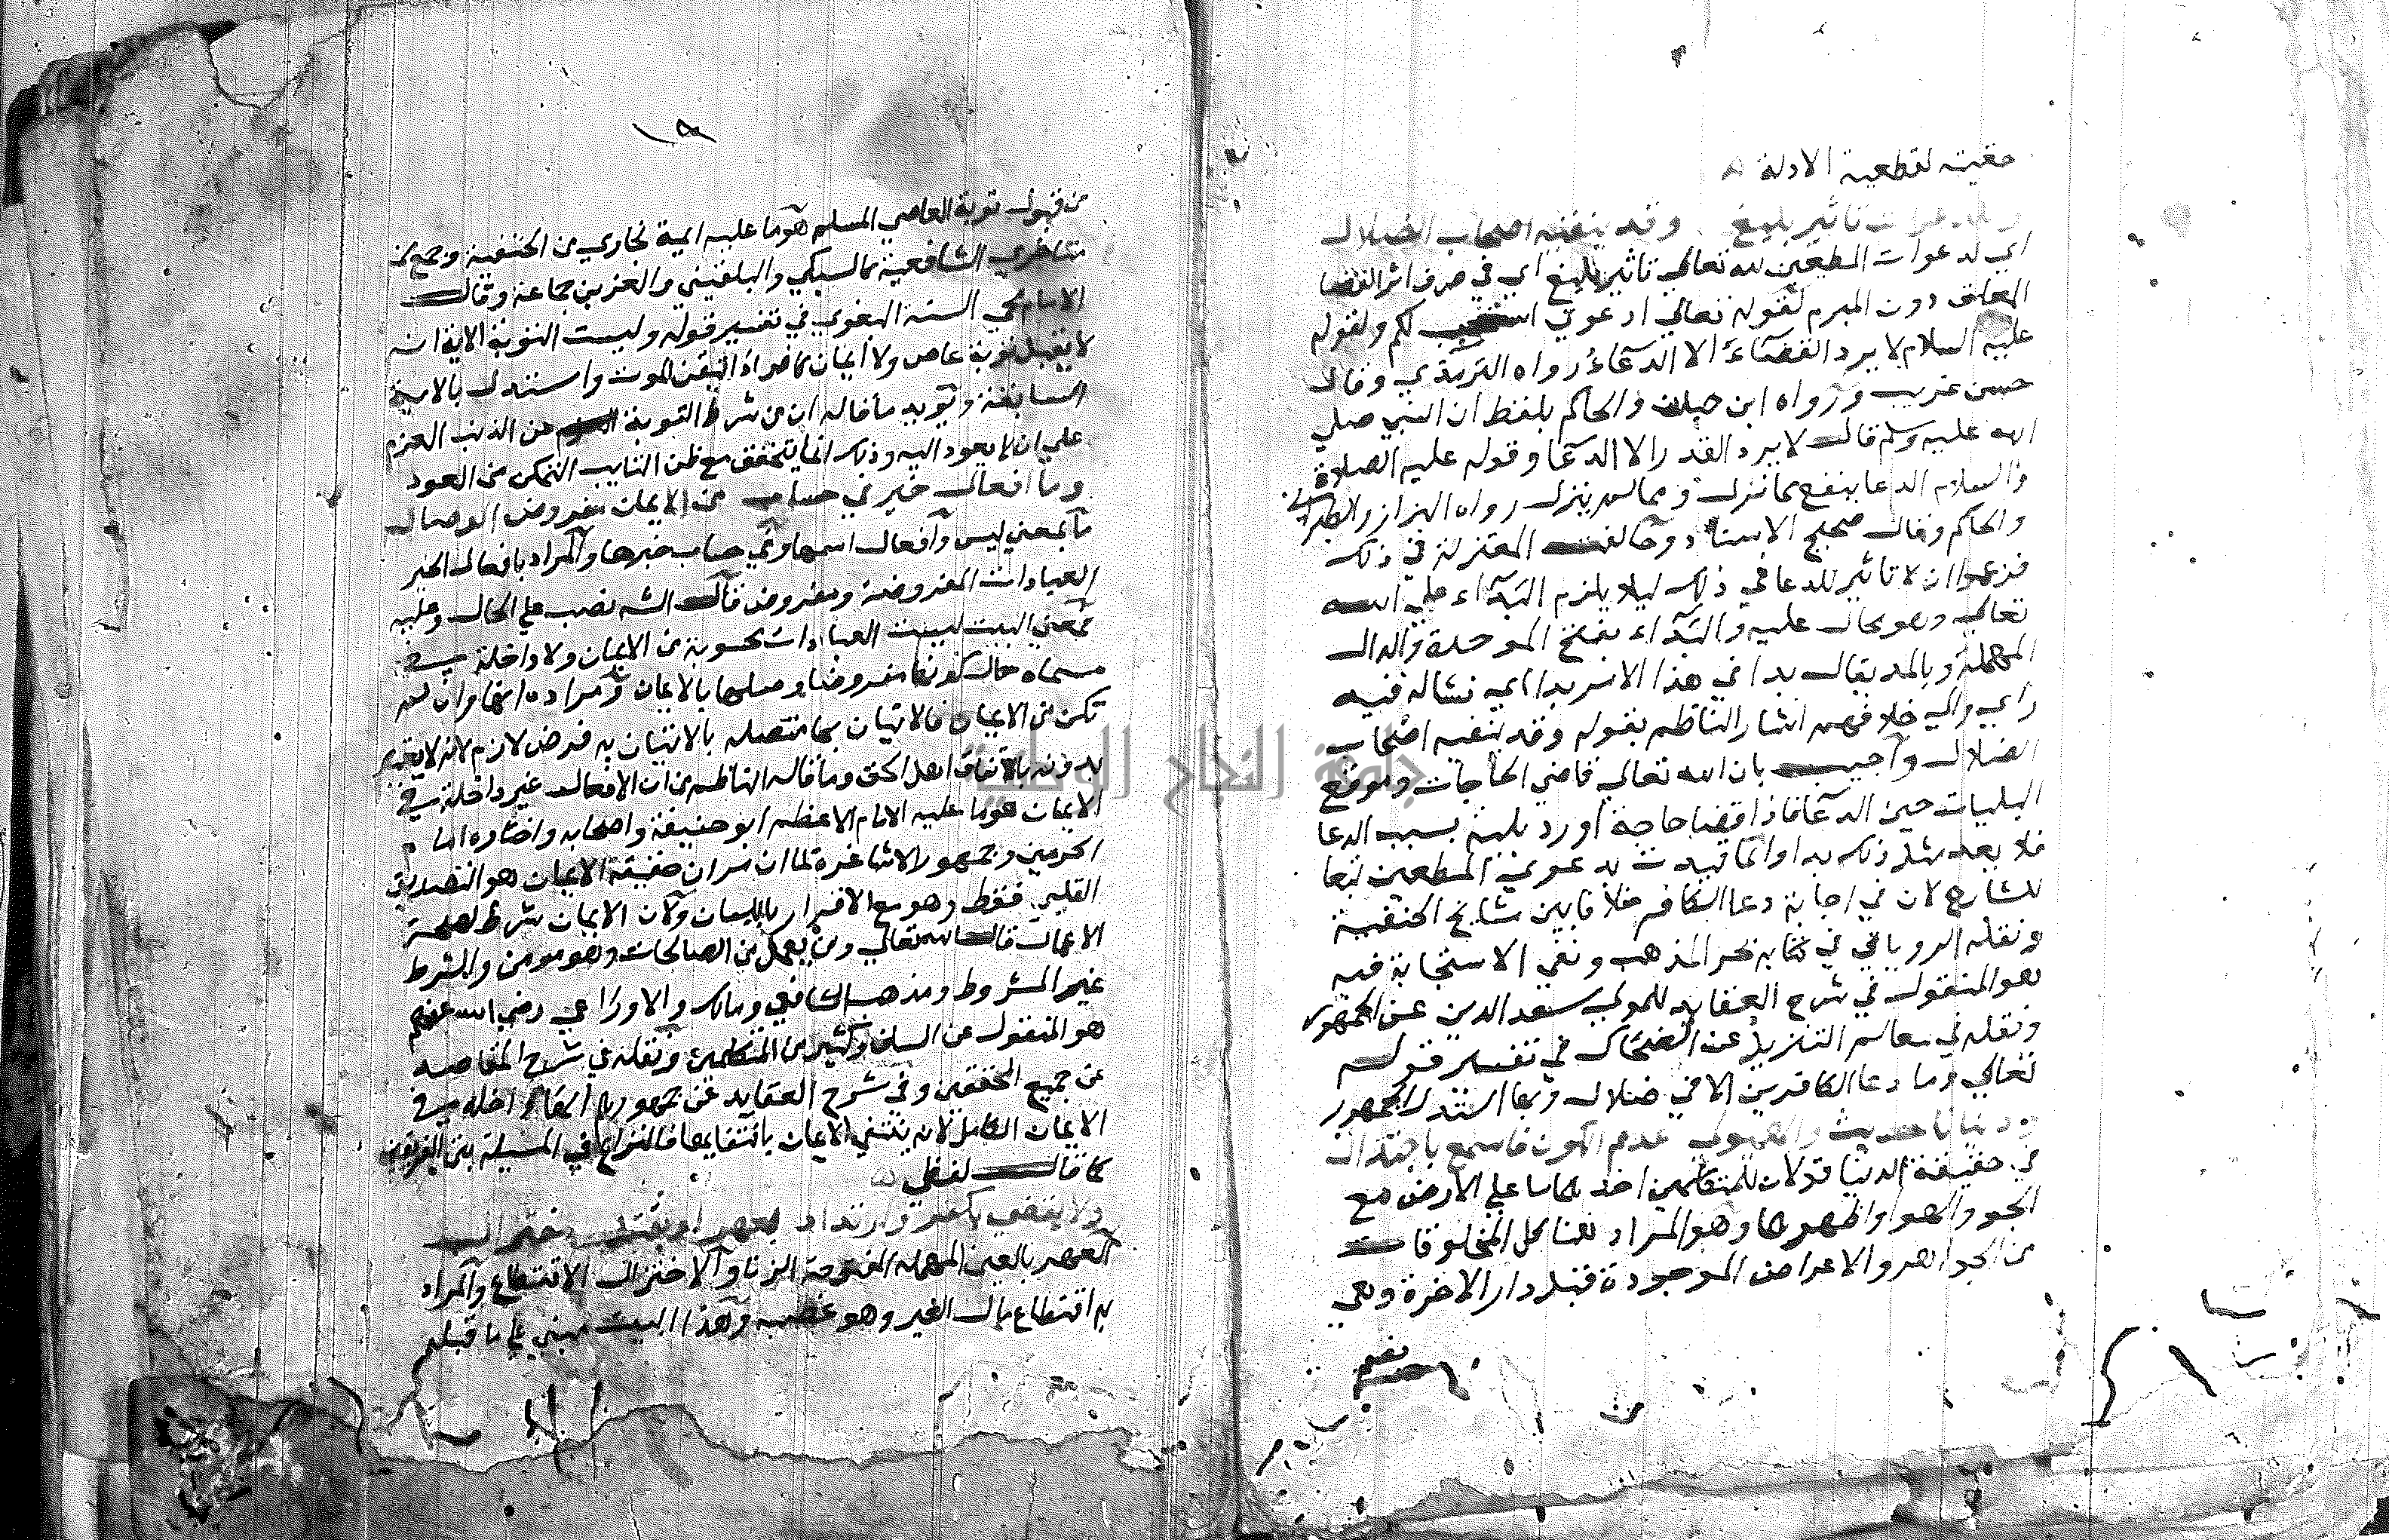 حقيته لقطعية الادلة
وللدعوات تاثير بليغ وقد ينفيه اصحاب الضلال
اي لدعوات المطيعين لله تعالي تاثير بليغ اي في صرف اثر القضا
المعلق دون المبرم لقوله تعالي ادعوني استجب لكم ولقوله
عليه السلام لا يرد القضاء الا الدعاء رواه الترمذي وقال
حسن غريب ورواه ابن حبان والحاكم بلفظ ان النبي صلي
الله عليه وسلم قال لا يرد القدر الا الدعا وقوله عليه الصلاة
والسلام الدعا ينفع مما نزل ومما لم ينزل رواه البزار والطبراني
والحاكم وقال صحيح الاسناد وخالفت المعتزلة في ذلك
فزعموا ان لا تاثير للدعا في ذلك ليلا يلزم البداء علي الله
تعالي وهو محال عليه والبداء بفتح الموحدة والدال
المهملة وبالمد يقال بدا في هذا الامر بدا اي نشا له فيه
راي والي خلافهم اشار الناظم بقوله وقد ينفيه اصحاب
الضلال واجيب بان الله تعالي قاضي الحاجات وموقع
البليات حين الدعا فاذا قضا حاجة او رد بلية بسبب الدعا
فلا يعد مثل ذلك بدا وانما قيدت بدعوي المطيعين تبعا
للشارح لان في اجابة دعا الكافر خلافا بين مشايخ الحنفية
ونقله الروياني في كتابه بحر المذهب ونفي الاستجابة فيه
هو المنقول في شرح العقايد للمولي سعد الدين عن الجمهور
ونقله في معالم التنزيل عن الضحاك في تفسير قوله
تعالي وما دعا الكافرين الا في ضلال وبها استدل الجمهور
ودنيانا حديث والهيولي عديم الكون فاسمع باجتذال
في حقيقة الدنيا قولان للمتكلمين احدهما ما علي الارض مع
الجو والهوا واظهرهما وهو المراد هنا كل المخلوقات
من الجواهر والاعراض الموجودة قبل دار الاخرة وهي
١٩
من قبول توبة العاصي المسلم هو ما عليه ايمة بخاري من الحنفية وجمع من
متاخري الشافعية كالسبكي والبلقيني والعز بن جماعة وقال
الامام محي السنة البغوي في تفسير قوله وليست التوبة الاية انه
لا يقبل توبة عاص ولا ايمان كافر اذا تيقن الموت واستدل بالاية
السابقة ويويد ما قاله ان من شرط التوبة عن الذنب العزم
علي ان لا يعود اليه وذلك انما يتحقق مع ظن التايب التمكن من العود
وما افعال خير في حساب من الايمان مفروض الوصال
ما بمعني ليس وافعال اسمها وفي حساب خبرها والمراد بافعال الخير
العبادات المفروضة ومفروض قال الش نصب علي الحال وعليه
فمعني البيت ليست العبادات محسوبة من الايمان ولا داخلة في
مسماه حال كونها مفروضا وصلها بالايمان ومراده انها وان لم
تكن من الايمان فالاتيان بها متصله بالاتيان به فرض لازم لانه لا يعتد
بدونه باتفاق اهل الحق وما قاله الناظم من ان الافعال غير داخلة في
الايمان هو ما عليه الامام الاعظم ابو حنيفة واصحابه واختاره اما م
الحرمين وجمهور الاشاعرة لما ان مر ان حقيقة الايمان هو التصديق
القلبي فقط وهو مع الاقرار باللسان ولان الايمان شرط لصحة
الاعمال قال الله تعالي ومن يعمل من الصالحات وهو مومن والشرط
غير المشروط ومذهب الشافعي ومالك والاوزاعي رضي الله عنهم
هو المنقول عن السلف وكثير من المتكلمين ونقله في شرح المقاصد
عن جميع المحققين وفي شرح العقايد عن جمهورهم انها داخلة في
الايمان الكامل لانه ينتفي الايمان بانتفايها فالنزاع في المسيلة بين الفريقين
كما قال لفظي
ولا يقضي بكفر وارتداد بعهر او بقتل واختزال
العهر بالعين المهملة المفتوحة الزنا والاختزال الاقتطاع والمراد
به اقتطاع مال الغير وهو غصبه وهذا البيت مبني علي ما قبله